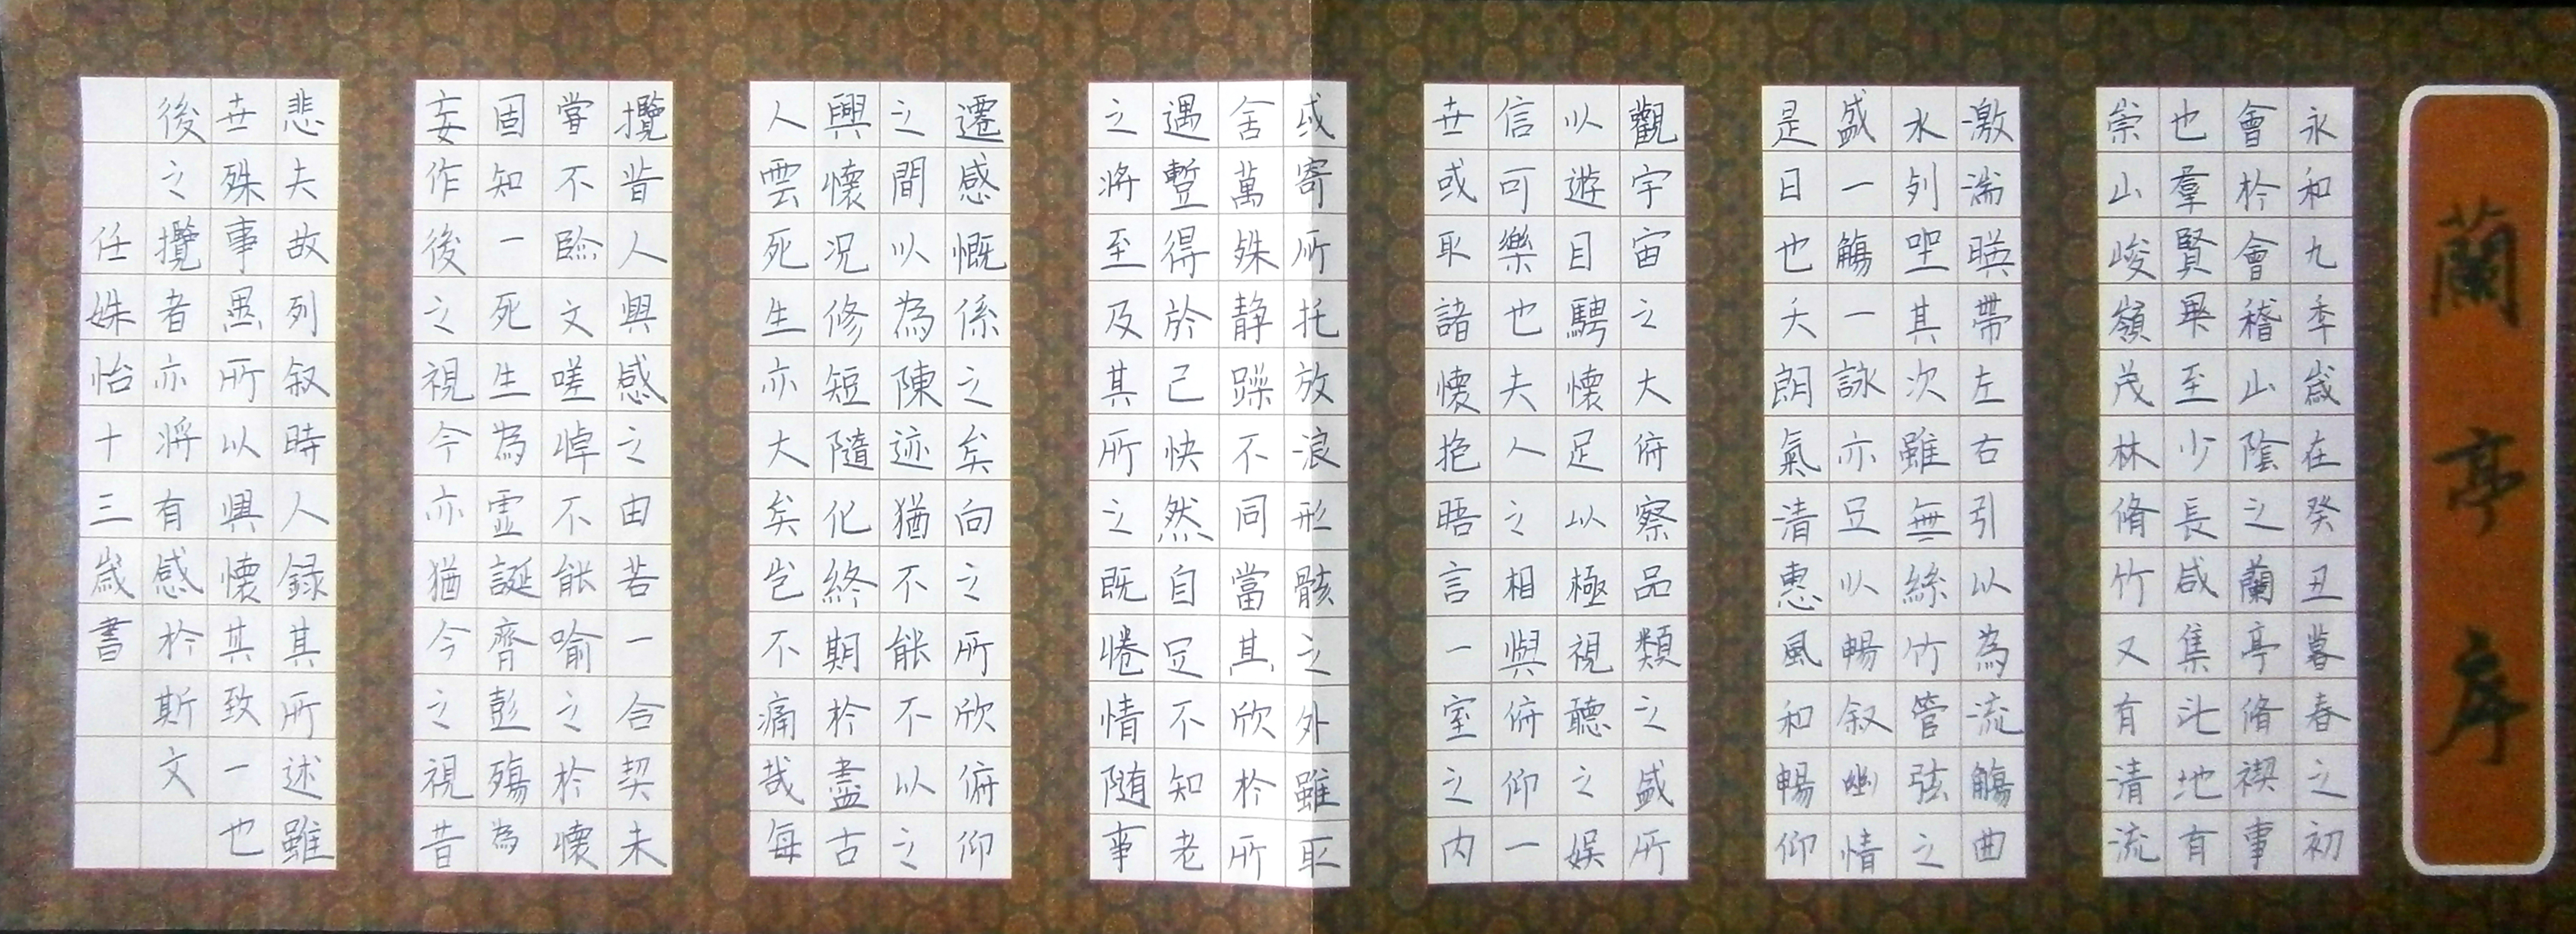 蘭亭序
永和九季歲在癸丑暮春之初
會於會稽山陰之蘭亭脩禊事
也羣賢畢至少長咸集此地有
崇山峻嶺茂林脩竹又有清流
激湍暎帶左右引以為流觴曲
水列坐其次雖無絲竹管弦之
盛一觴一詠亦足以暢叙幽情
是日也天朗氣清惠風和暢仰
觀宇宙之大俯察品類之盛所
以遊目騁懷足以極視聽之娱
信可樂也夫人之相與俯仰一
世或取諸懷抱晤言一室之内
或寄所托放浪形骸之外雖取
舍萬殊静躁不同當其欣於所
遇暫得於己快然自足不知老
之將至及其所之既惓情随事
遷感慨係之矣向之所欣俯仰
之間以為陳迹猶不能不以之
興懷况修短隨化終期於盡古
人雲死生亦大矣岂不痛哉每
攬昔人興感之由若一合契未
嘗不臨文嗟悼不能喻之於懷
固知一死生為虛誕齊彭殤為
妄作後之視今亦猶今之視昔
悲夫故列叙時人録其所述雖
世殊事異所以興懷其致一也
後之攬者亦將有感於斯文
任姝怡十三歲書